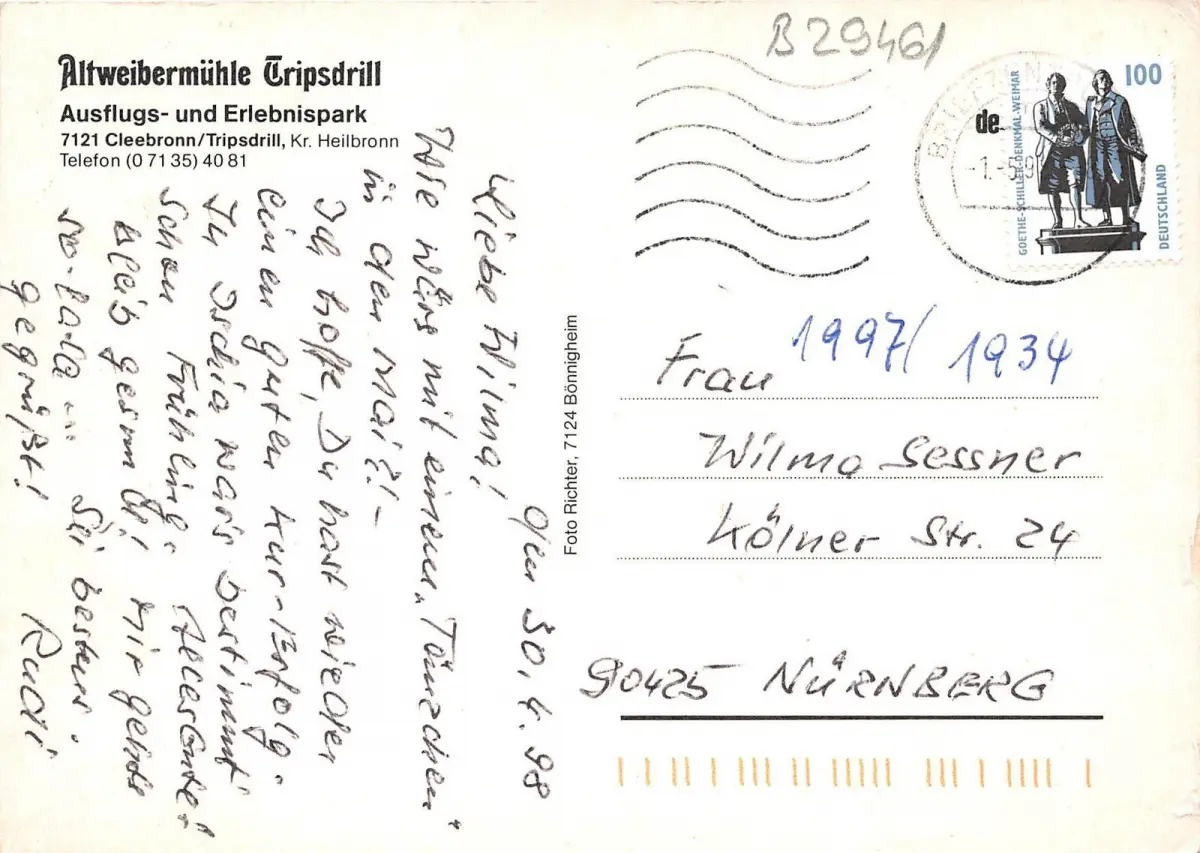 Altweibermühle Tripsdrill
Ausflugs- und Erlebnispark
7121 Cleebronn/Tripsdrill, Kr. Heilbronn
Telefon (0 71 35) 40 81
30.4.98
Liebe Wilma!
Wie wärs mit einem „Tänzchen“
in den Mai?! -
Ich hoffe, Du hast wieder
einen guten Kur-Erfolg.
In Ischia war's bestimmt
schon Frühling. Allesgute!
Bleib gesund! Mir gehts
"so-la-la". Sei bestens
gegrüßt! Rudi
Foto Richter, 7124 Bönnigheim
B 29461
100
GOETHE-SCHILLER-DENKMAL-WEIMAR
DEUTSCHLAND
de
1997/ 1934
Frau
Wilma Sessner
Kölner Str. 24
90425 NÜRNBERG